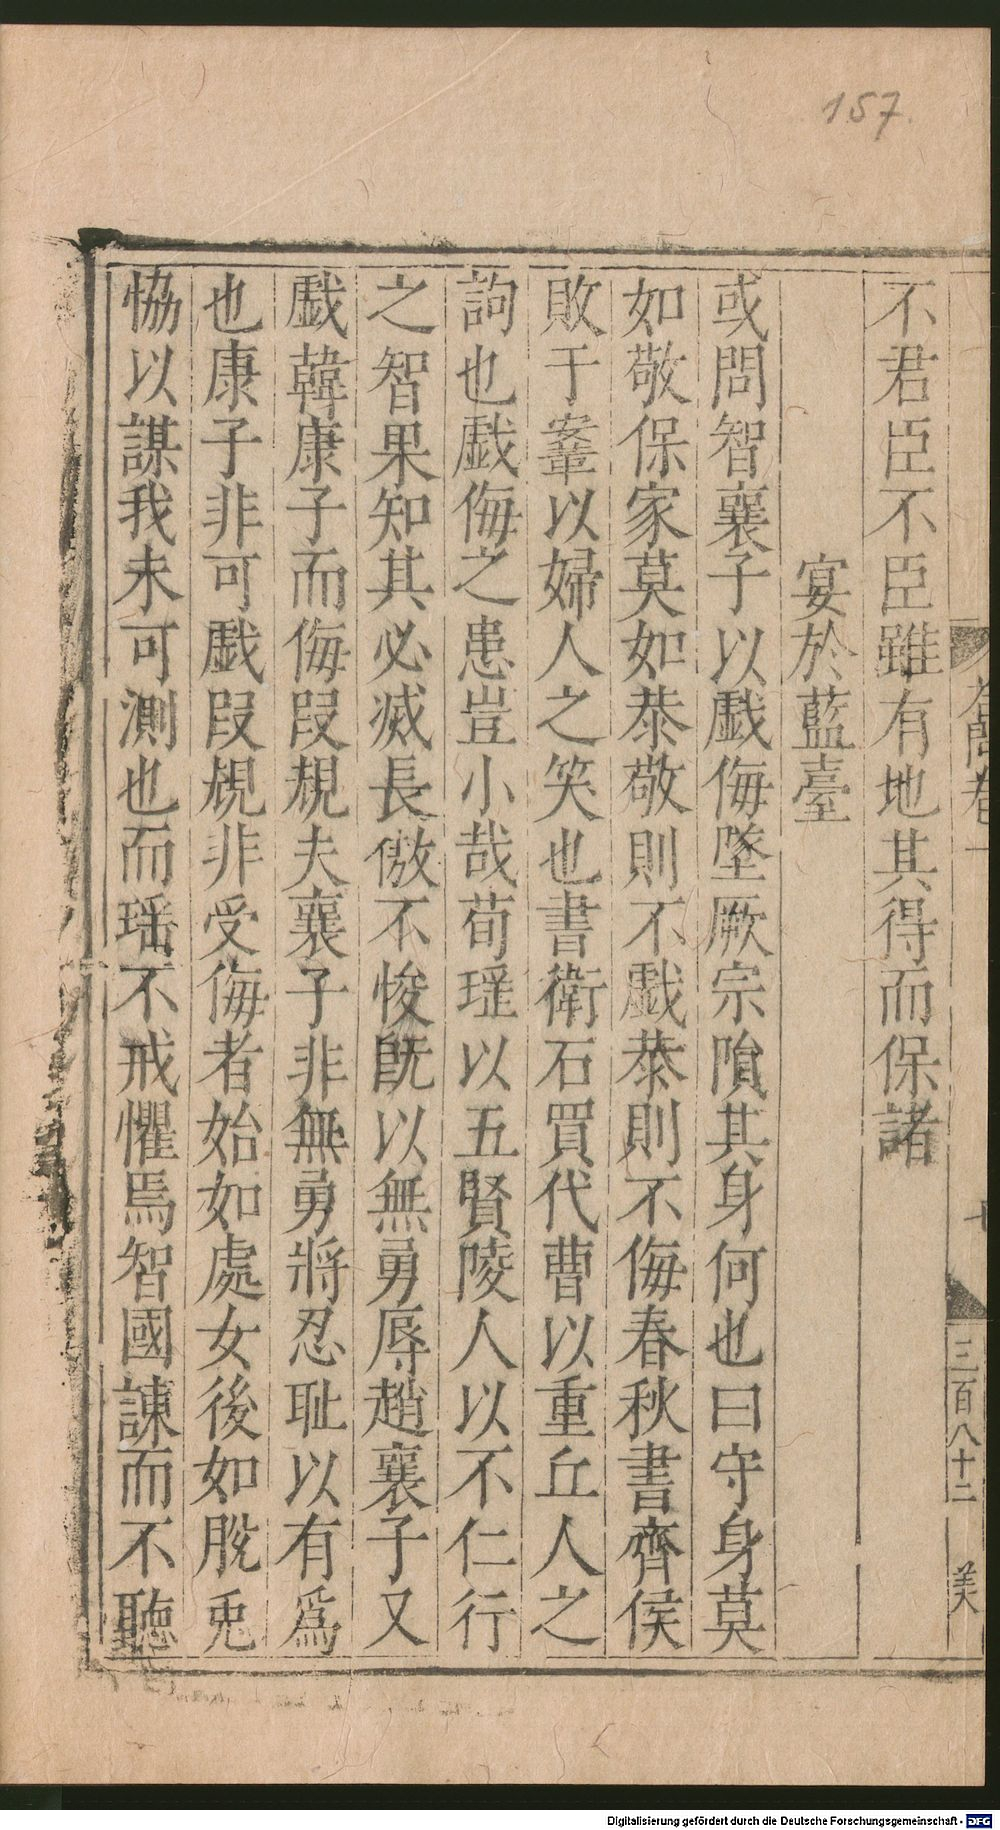 157.
不君臣不臣雖有地其得而保諸
宴於藍臺
或問智襄子以戱侮墜厥宗隕其身何也曰守身莫
如敬保家莫如恭敬則不戱恭則不侮春秋書齊侯
敗于鞌以婦人之笑也書衛石買代曹以重丘人之
詢也戱侮之患豈小哉荀瑶以五賢陵人以不仁行
之智果知其必滅長傲不悛旣以無勇辱趙襄子又
戱韓康子而侮叚規夫襄子非無勇將忍耻以有爲
也康子非可戱叚規非受侮者始如處女後如脫兎
恊以謀我未可測也而瑶不戒懼焉智國諫而不聽
三百八十二
美
Digitalisierung gefördert durch die Deutsche Forschungsgemeinschaft - DFG